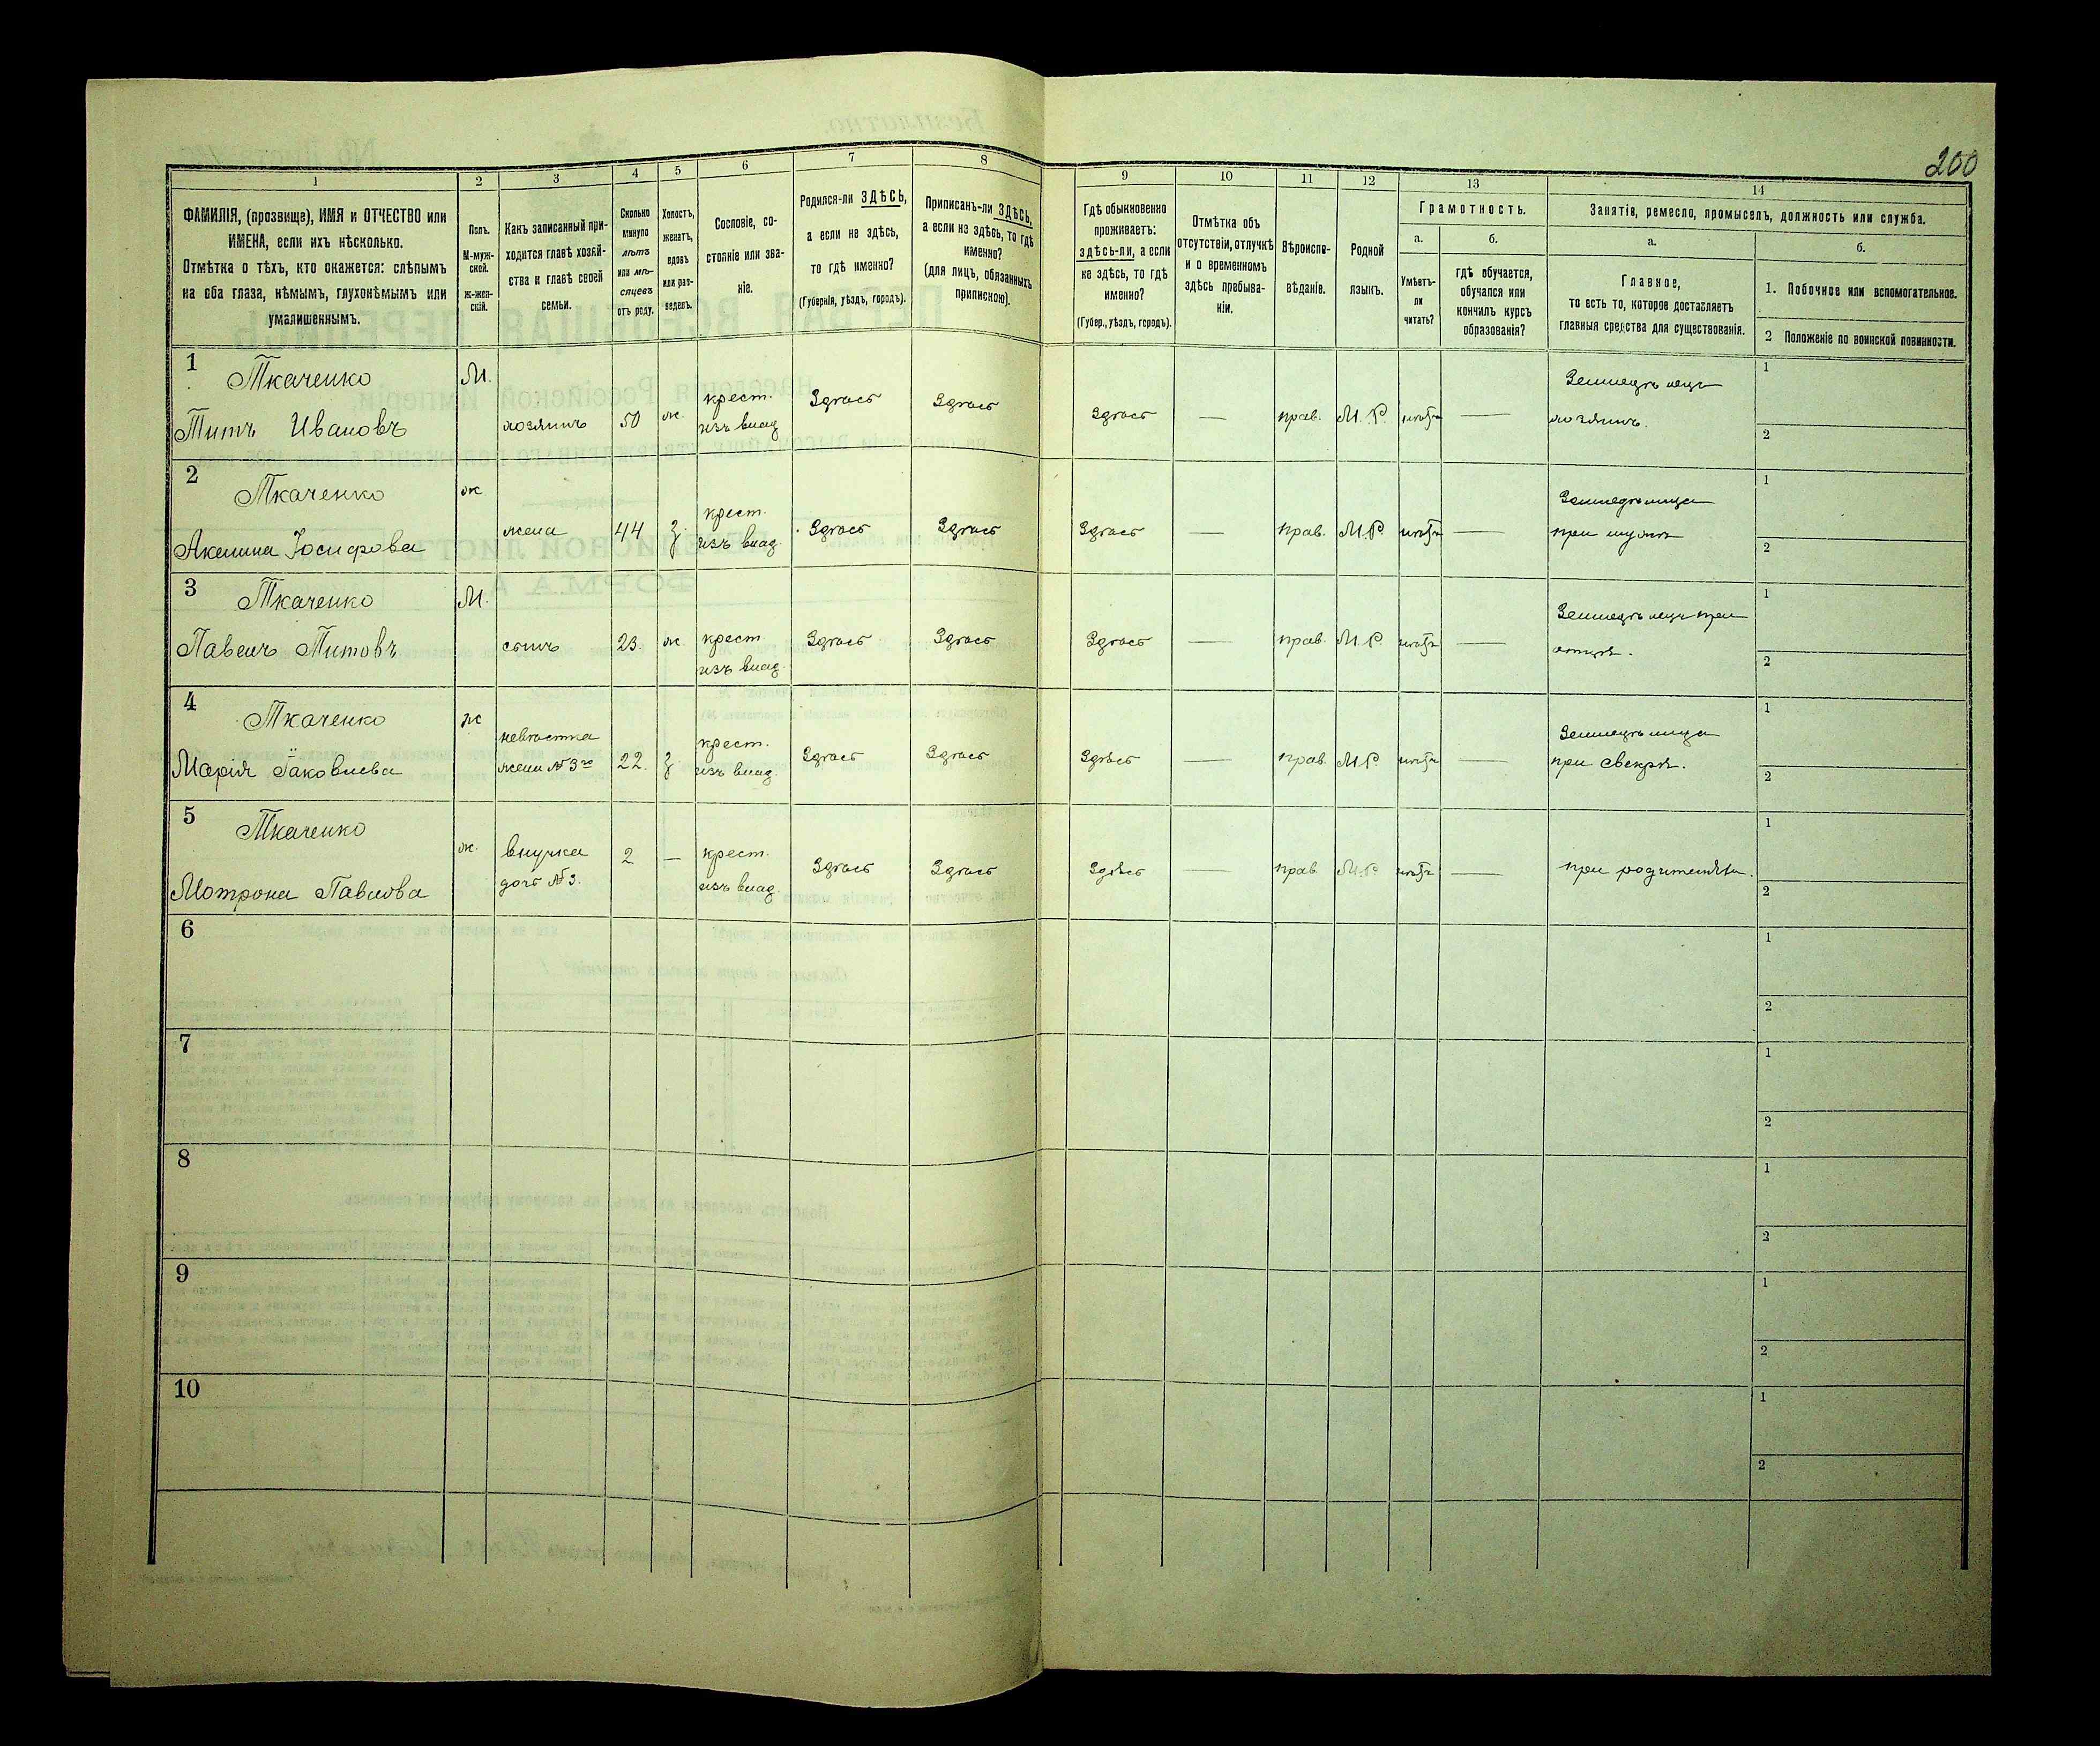 200
1
2
3
4
5
6
7
8
9
10
11
12
13
14
ФАМИЛІЯ, (прозвище), ИМЯ и ОТЧЕСТВО или
ИМЕНА, если ихъ нѣсколько.
Отмѣтка о тѣхъ, кто окажется: слѣпымъ
на оба глаза, нѣмымъ, глухонѣмымъ или
умалишеннымъ.
Полъ.
М-муж-
ской.
ж-жен-
скій.
Какъ записанный при-
ходится главѣ хозяй-
ства и главѣ своей
семьи.
Сколько
минуло
лѣтъ
или мѣ-
сяцевъ
отъ роду.
Холостъ,
женатъ,
вдовъ
или раз-
веденъ.
Сословіе, со-
стояніе или зва-
ніе.
Родился-ли ЗДѢСЬ,
а если не здѣсь,
то гдѣ именно?
(Губернія, уѣздъ, городъ).
Приписанъ-ли ЗДѢСЬ,
а если не здѣсь, то гдѣ
именно?
(для лицъ, обязанныхъ
припискою).
Гдѣ обыкновенно
проживаетъ:
здѣсь-ли, а если
не здѣсь, то гдѣ
именно?
(Губер., уѣздъ, городъ).
Отмѣтка объ
отсутствіи, отлучкѣ
и о временномъ
здѣсь пребыва-
ніи.
Вѣроиспо-
вѣданіе.
Родной
языкъ.
Грамотность.
а.
Умѣетъ-
ли
читать?
б.
гдѣ обучается,
обучался или
кончилъ курсъ
образованія?
Занятіе, ремесло, промыселъ, должность или служба.
а.
Главное,
то есть то, которое доставляетъ
главныя средства для существованія.
б.
1. Побочное или вспомогательное.
2 Положеніе по воинской повинности.
1
Ткаченко
Титъ Ивановъ
М.
хозяинъ
50
ж.
крест.
изъ влад.
Здѣсь
Здѣсь
Здѣсь
—
прав.
М. Р.
нѣтъ
—
Земледѣлецъ
хозяинъ.
1
2
2
Ткаченко
Акелина Іосифова
ж
жена
44
з.
крест.
изъ влад.
Здѣсь
Здѣсь
Здѣсь
—
прав.
М.Р.
нѣтъ
—
Земледѣлица
при мужѣ
1
2
3
Ткаченко
Павелъ Титовъ
М.
сынъ
23.
ж.
крест
изъ влад.
Здѣсь
Здѣсь
Здѣсь
—
прав.
М.Р.
нѣтъ
—
Земледѣлецъ при
отцѣ.
1
2
4
Ткаченко
Марія Іаковлева
ж
невѣстка
жена №3го
22.
з
крест.
изъ влад.
Здѣсь
Здѣсь
Здѣсь
—
прав.
М.Р.
нѣтъ
—
Земледѣлица
при свекрѣ.
1
2
5
Ткаченко
Мотрона Павлова
ж.
внучка
дочь №3.
2
—
крест.
изъ влад.
Здѣсь
Здѣсь
Здѣсь
—
прав.
М.Р
нѣтъ
—
при родителяхъ.
1
2
6
1
2
7
1
2
8
1
2
9
1
2
10
1
2